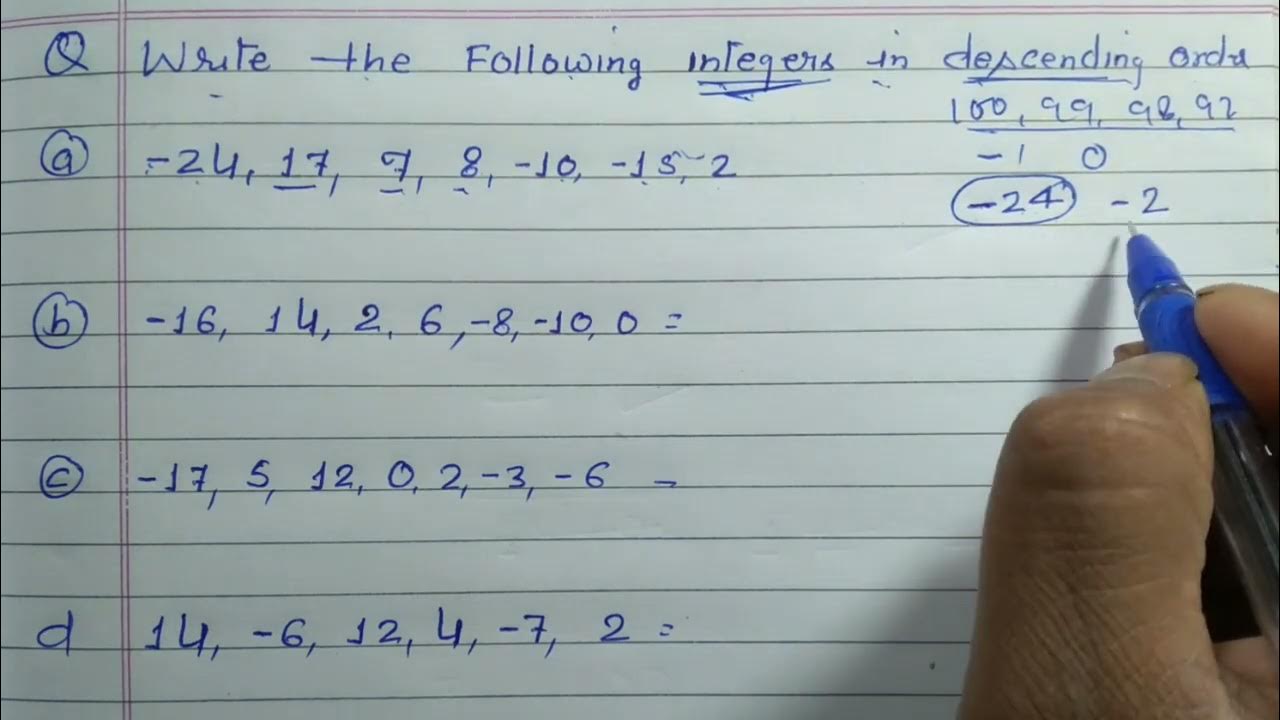 Q Write the Following integers in descending order
100, 99, 98, 92
-1 0
a -24, 17, 7, 8, -10, -15, -2
-24 -2
b -16, 14, 2, 6, -8, -10, 0 =
c -17, 5, 12, 0, 2, -3, -6 -
d 14, -6, 12, 4, -7, 2 =